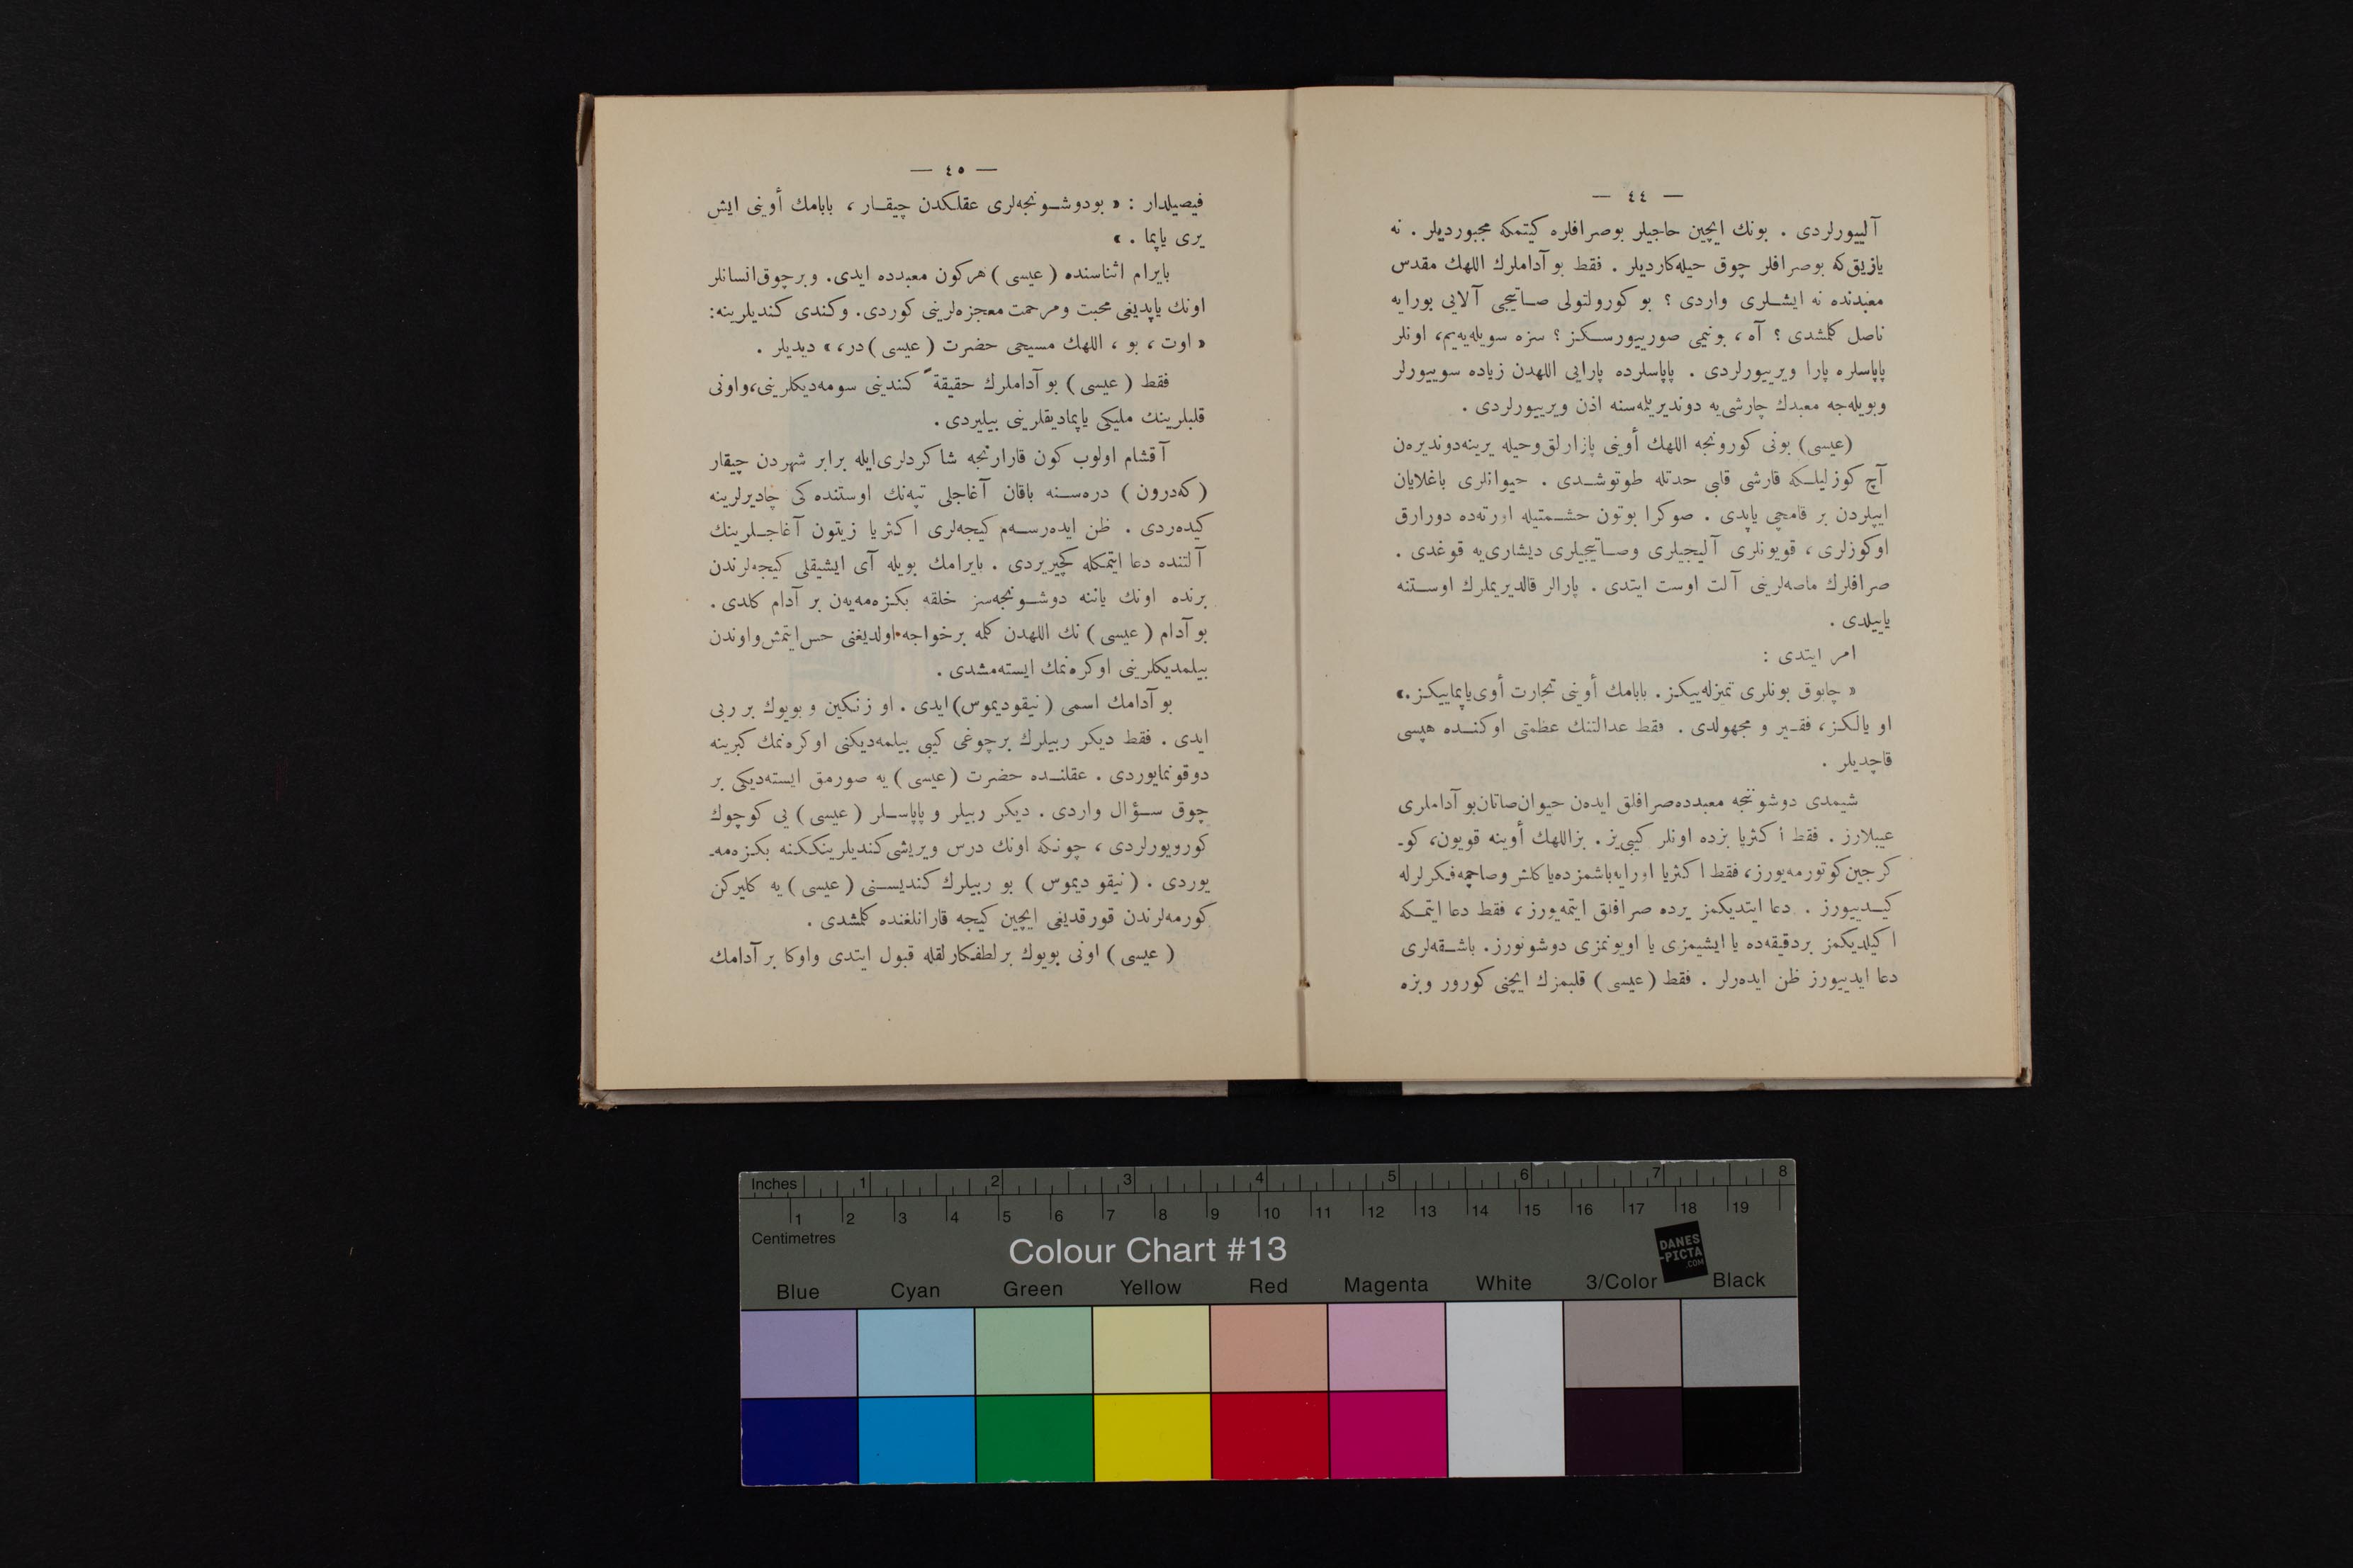 — ٤٤ —
آلییورلردی . بونك ایچین حاجیلر بوصرافلره كیتمكه مجبوردیلر . نه
یازیق‌كه بوصرافلر چوق حیله‌كاردیلر . فقط بو آداملرك اللهك مقدس
معبدنده نه ایشلری واردی ؟ بو كورولتولی صاتیجی آلایی بورایه
ناصل كلمشدی ؟ آه ، بونیمی صورییورسكز ؟ سزه سویله‌یه‌یم، اونلر
پاپاسلره پارا ویرییورلردی . پاپاسلرده پارایی اللهدن زیاده سوییورلر
وبویله‌جه معبدك چارشی‌یه دوندیریلمه‌سنه اذن ویرییورلردی .
(عیسی) بونی كورونجه اللهك أوینی پازارلق‌وحیله یرینه‌دوندیره‌ن
آچ كوزلیلكه قارشی قلبی حدتله طوتوشدی . حیوانلری باغلایان
ایپلردن بر قامچی یاپدی . صوكرا بوتون حشمتیله اورته‌ده دورارق
اوكوزلری ، قویونلری آلیجیلری وصاتیجیلری دیشاری‌یه قوغدی .
صرافلرك ماصه‌لرینی آلت اوست ایتدی . پارالر قالدیریملرك اوستنه
یاییلدی .
امر ایتدی :
« چابوق بونلری تمیزله‌ییكز . بابامك أوینی تجارت أوی‌یاپماییكز .»
او یالكز، فقیر و مجهولدی . فقط عدالتنك عظمتی اوكنده هپسی
قاچدیلر .
شیمدی دوشوننجه معبدده‌صرافلق ایده‌ن حیوان‌صاتان‌بو آداملری
عیبلارز . فقط اكثریا بزده اونلر كیبی‌یز . بزاللهك أوینه قویون، كو-
كرجین‌كوتورمه‌یورز، فقط اكثریا اورایه‌باشمزده‌یاكلش وصاچمه‌فكرلرله
كیدییورز . دعا ایتدیكمز یرده صرافلق ایتمه‌یورز، فقط دعا ایتمكه
اكیلدیكمز بردقیقه‌ده یا ایشیمزی یا اویونمزی دوشونورز. باشقه‌لری
دعا ایدییورز ظن ایده‌رلر . فقط (عیسی) قلبمزك ایچنی كورور وبزه
— ٤٥ —
فیصیلدار : « بودوشونجه‌لری عقلكدن چیقار ، بابامك أوینی ایش
یری یاپما . »
بایرام اثناسنده (عیسی) هركون معبدده ایدی. وبرچوق‌انسانلر
اونك یاپدیغی محبت ومرحمت معجزه‌لرینی كوردی. وكندی كندیلرینه:
« اوت ، بو ، اللهك مسیحی حضرت (عیسی) در، » دیدیلر .
فقط (عیسی) بو آداملرك حقیقةً كندینی سومه‌دیكلرینی،واونی
قلبلرینك ملیكی یاپمادیقلرینی بیلیردی .
آقشام اولوب كون قارارنجه شاكردلری‌ایله برابر شهردن چیقار
(كه‌درون) دره‌سنه باقان آغاجلی تپه‌نك اوستنده‌كی چادیرلرینه
كیده‌ردی . ظن ایده‌رسه‌م كیجه‌لری اكثریا زیتون آغاجلرینك
آلتنده دعا ایتمكله كچیریردی . بایرامك بویله آی ایشیقلی كیجه‌لرندن
برنده اونك یاننه دوشونجه‌سز خلقه بكزه‌مه‌یه‌ن بر آدام كلدی .
بو آدام (عیسی) نك اللهدن كلمه برخواجه اولدیغنی حس‌ایتمش‌واوندن
بیلمدیكلرینی اوكره‌نمك ایسته‌مشدی .
بو آدامك اسمی (نیقودیموس) ایدی . او زنكین و بویوك بر ربی
ایدی . فقط دیكر ربیلرك برچوغی كیبی بیلمه‌دیكنی اوكره‌نمك كبرینه
دوقونمایوردی . عقلنده حضرت (عیسی) یه صورمق ایسته‌دیكی بر
چوق سؤال واردی . دیكر ربیلر و پاپاسلر (عیسی) یی كوچوك
كورویورلردی ، چونكه اونك درس ویریشی‌كندیلرینككنه بكزه‌مه-
یوردی . (نیقو دیموس) بو ربیلرك كندیسنی (عیسی) یه كلیركن
كورمه‌لرندن قورقدیغی ایچین كیجه قارانلغنده كلمشدی .
(عیسی) اونی بویوك بر لطفكارلقله قبول ایتدی واوكا بر آدامك
Inches 1 2 3 4 5 6 7 8
1 2 3 4 5 6 7 8 9 10 11 12 13 14 15 16 17 18 19
Centimetres
Colour Chart #13
DANES
-PICTA
.COM
Blue Cyan Green Yellow Red Magenta White 3/Color Black